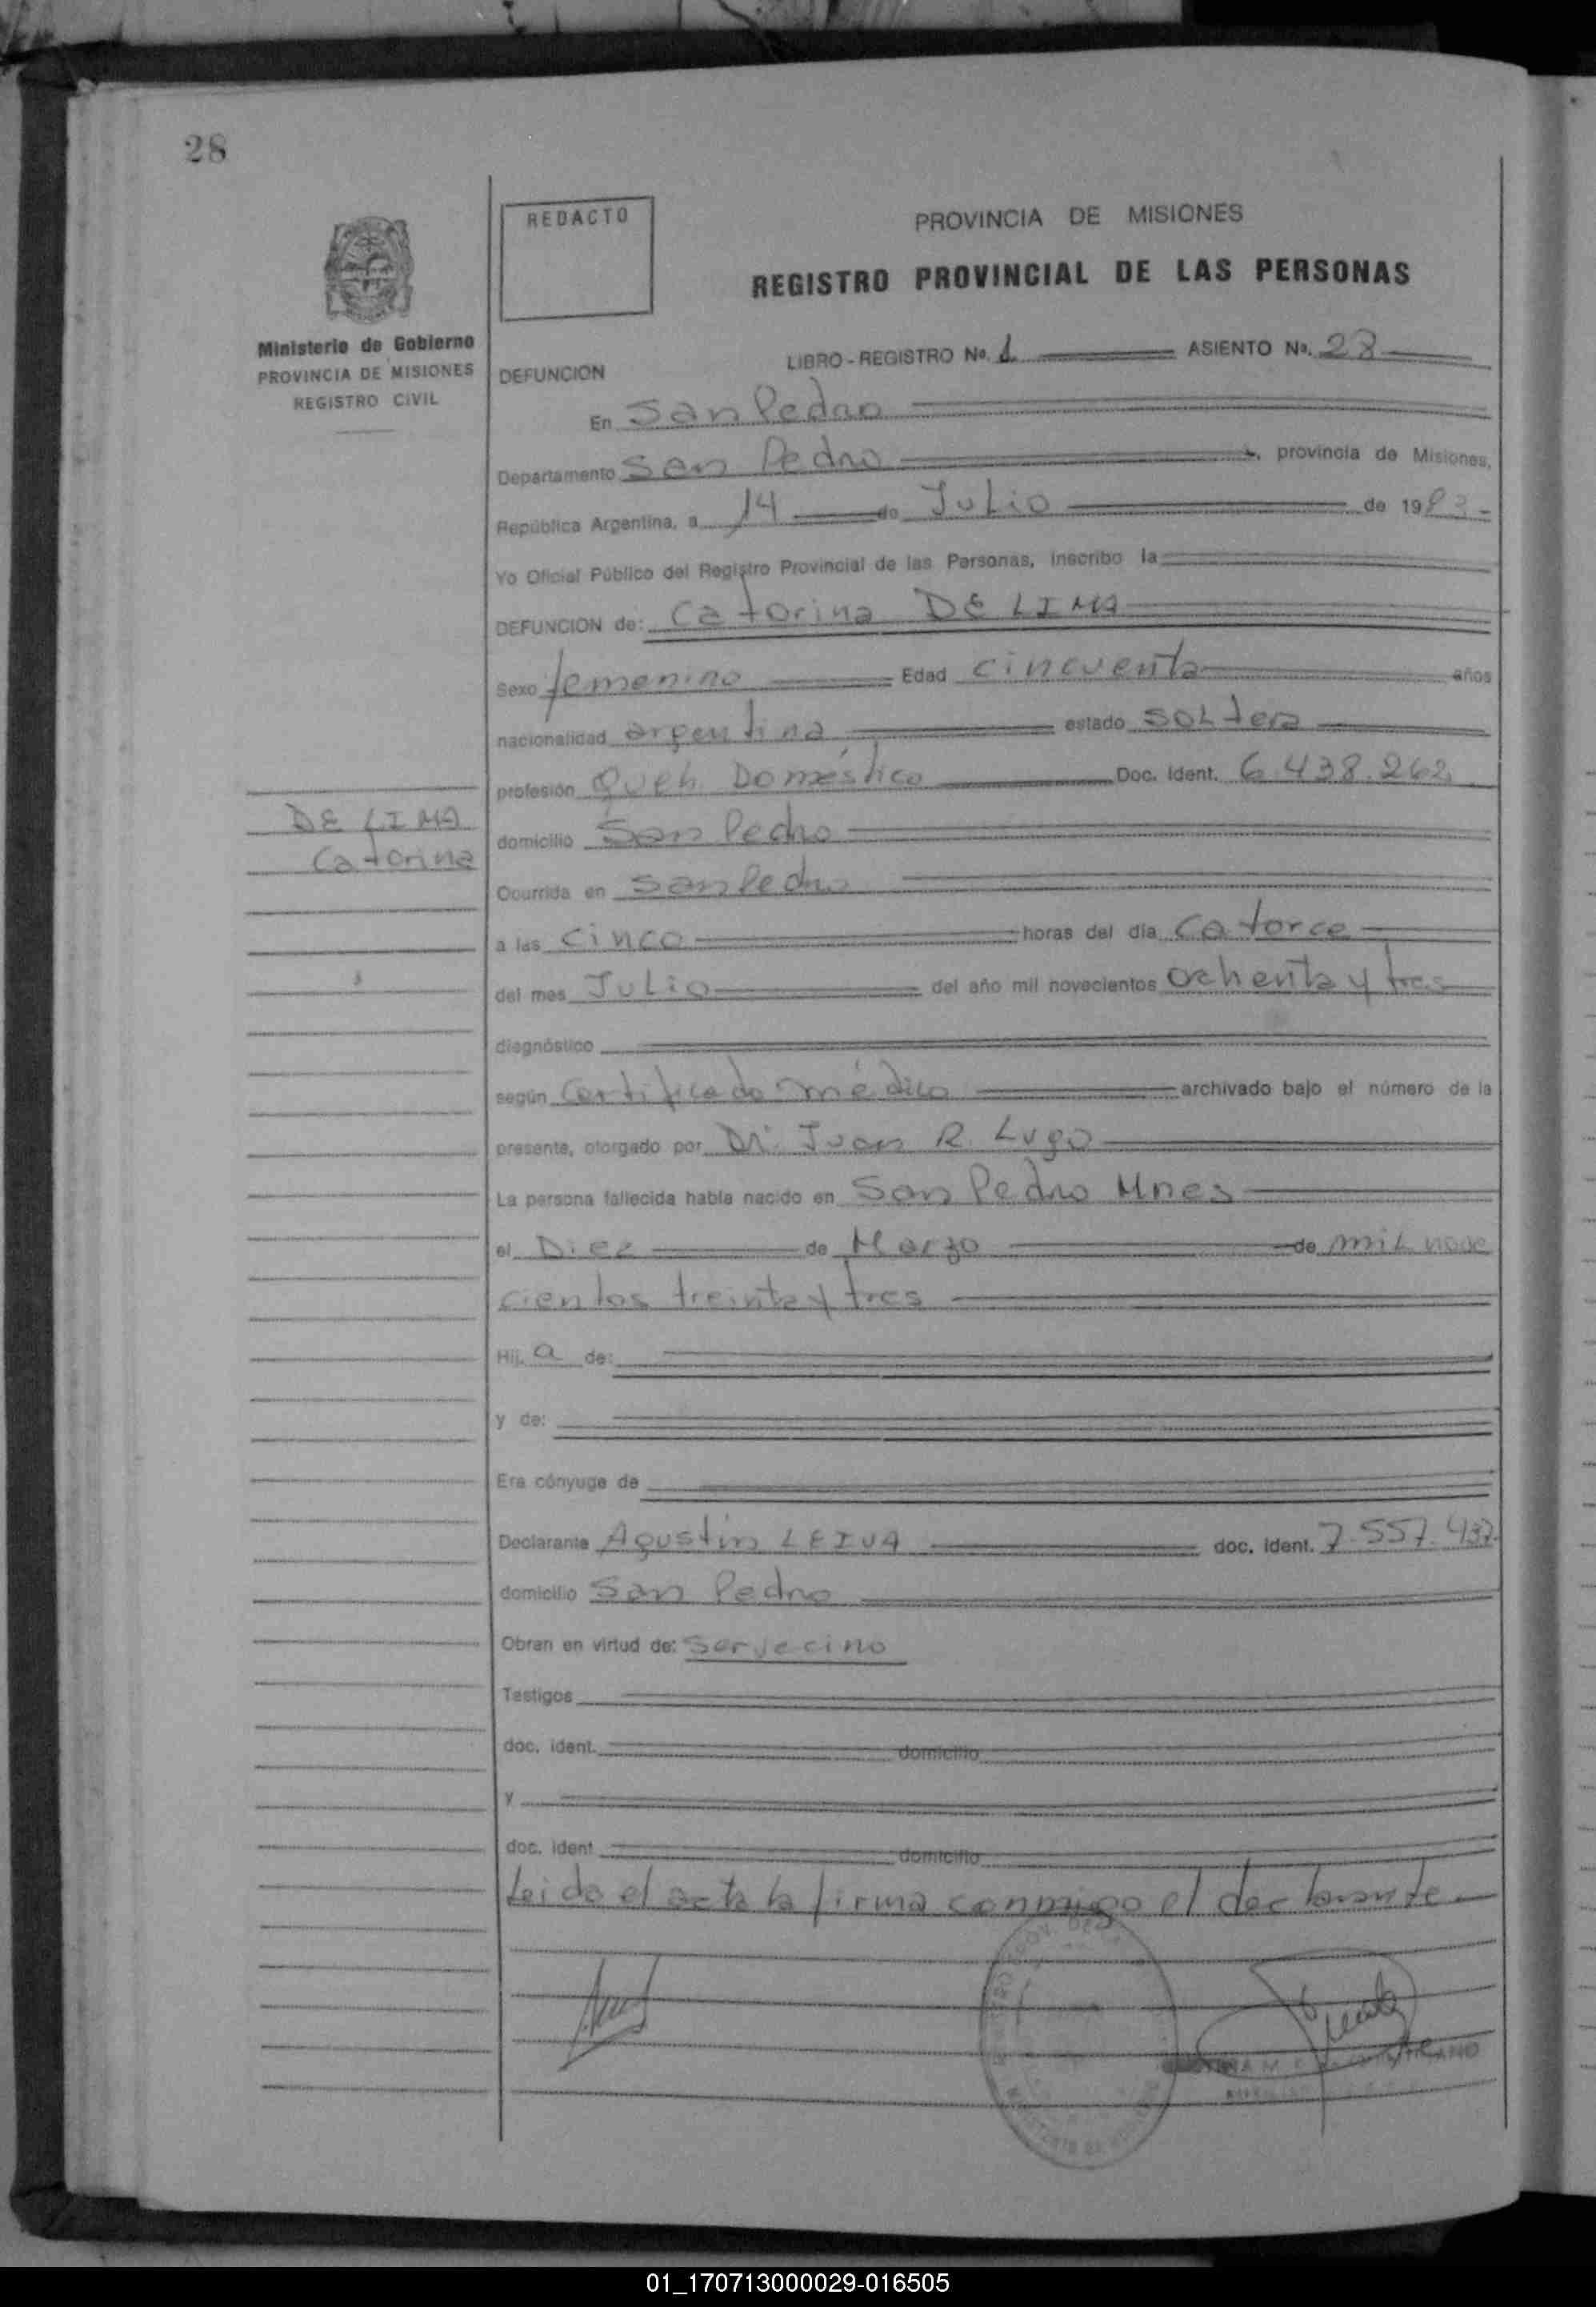 28
REDACTO
PROVINCIA DE MISIONES
REGISTRO PROVINCIAL DE LAS PERSONAS
Ministerio de Gobierno
PROVINCIA DE MISIONES
REGISTRO CIVIL
LIBRO - REGISTRO No. 1 ASIENTO No. 28
DEFUNCION
En San Pedro
Departamento San Pedro, provincia de Misiones,
República Argentina, a 14 de Julio de 1983
Yo Oficial Público del Registro Provincial de las Personas, inscribo la
DEFUNCION de: Catorina DE LIMA
Sexo femenino Edad cincuenta años
nacionalidad argentina estado soltera
profesión Queh. Doméstico Doc. Ident. 6.438.262
DE LIMA
Catorina
domicilio San Pedro
Ocurrida en San Pedro
a las cinco horas del día catorce
del mes Julio del año mil novecientos ochenta y tres
diagnóstico
según Certificado médico archivado bajo el número de la
presente, otorgado por Dr. Juan R. Lugo
La persona fallecida había nacido en San Pedro Mnes
el Diez de Marzo de mil nove
cientos treinta y tres
Hij a de:
y de:
Era cónyuge de
Declarante Agustin LEIVA doc. ident. 7.557.437
domicilio San Pedro
Obran en virtud de: Ser vecino
Testigos
doc. ident. domicilio
y
doc. ident domicilio
Leida el acta la firma conmigo el declarante
01_170713000029-016505